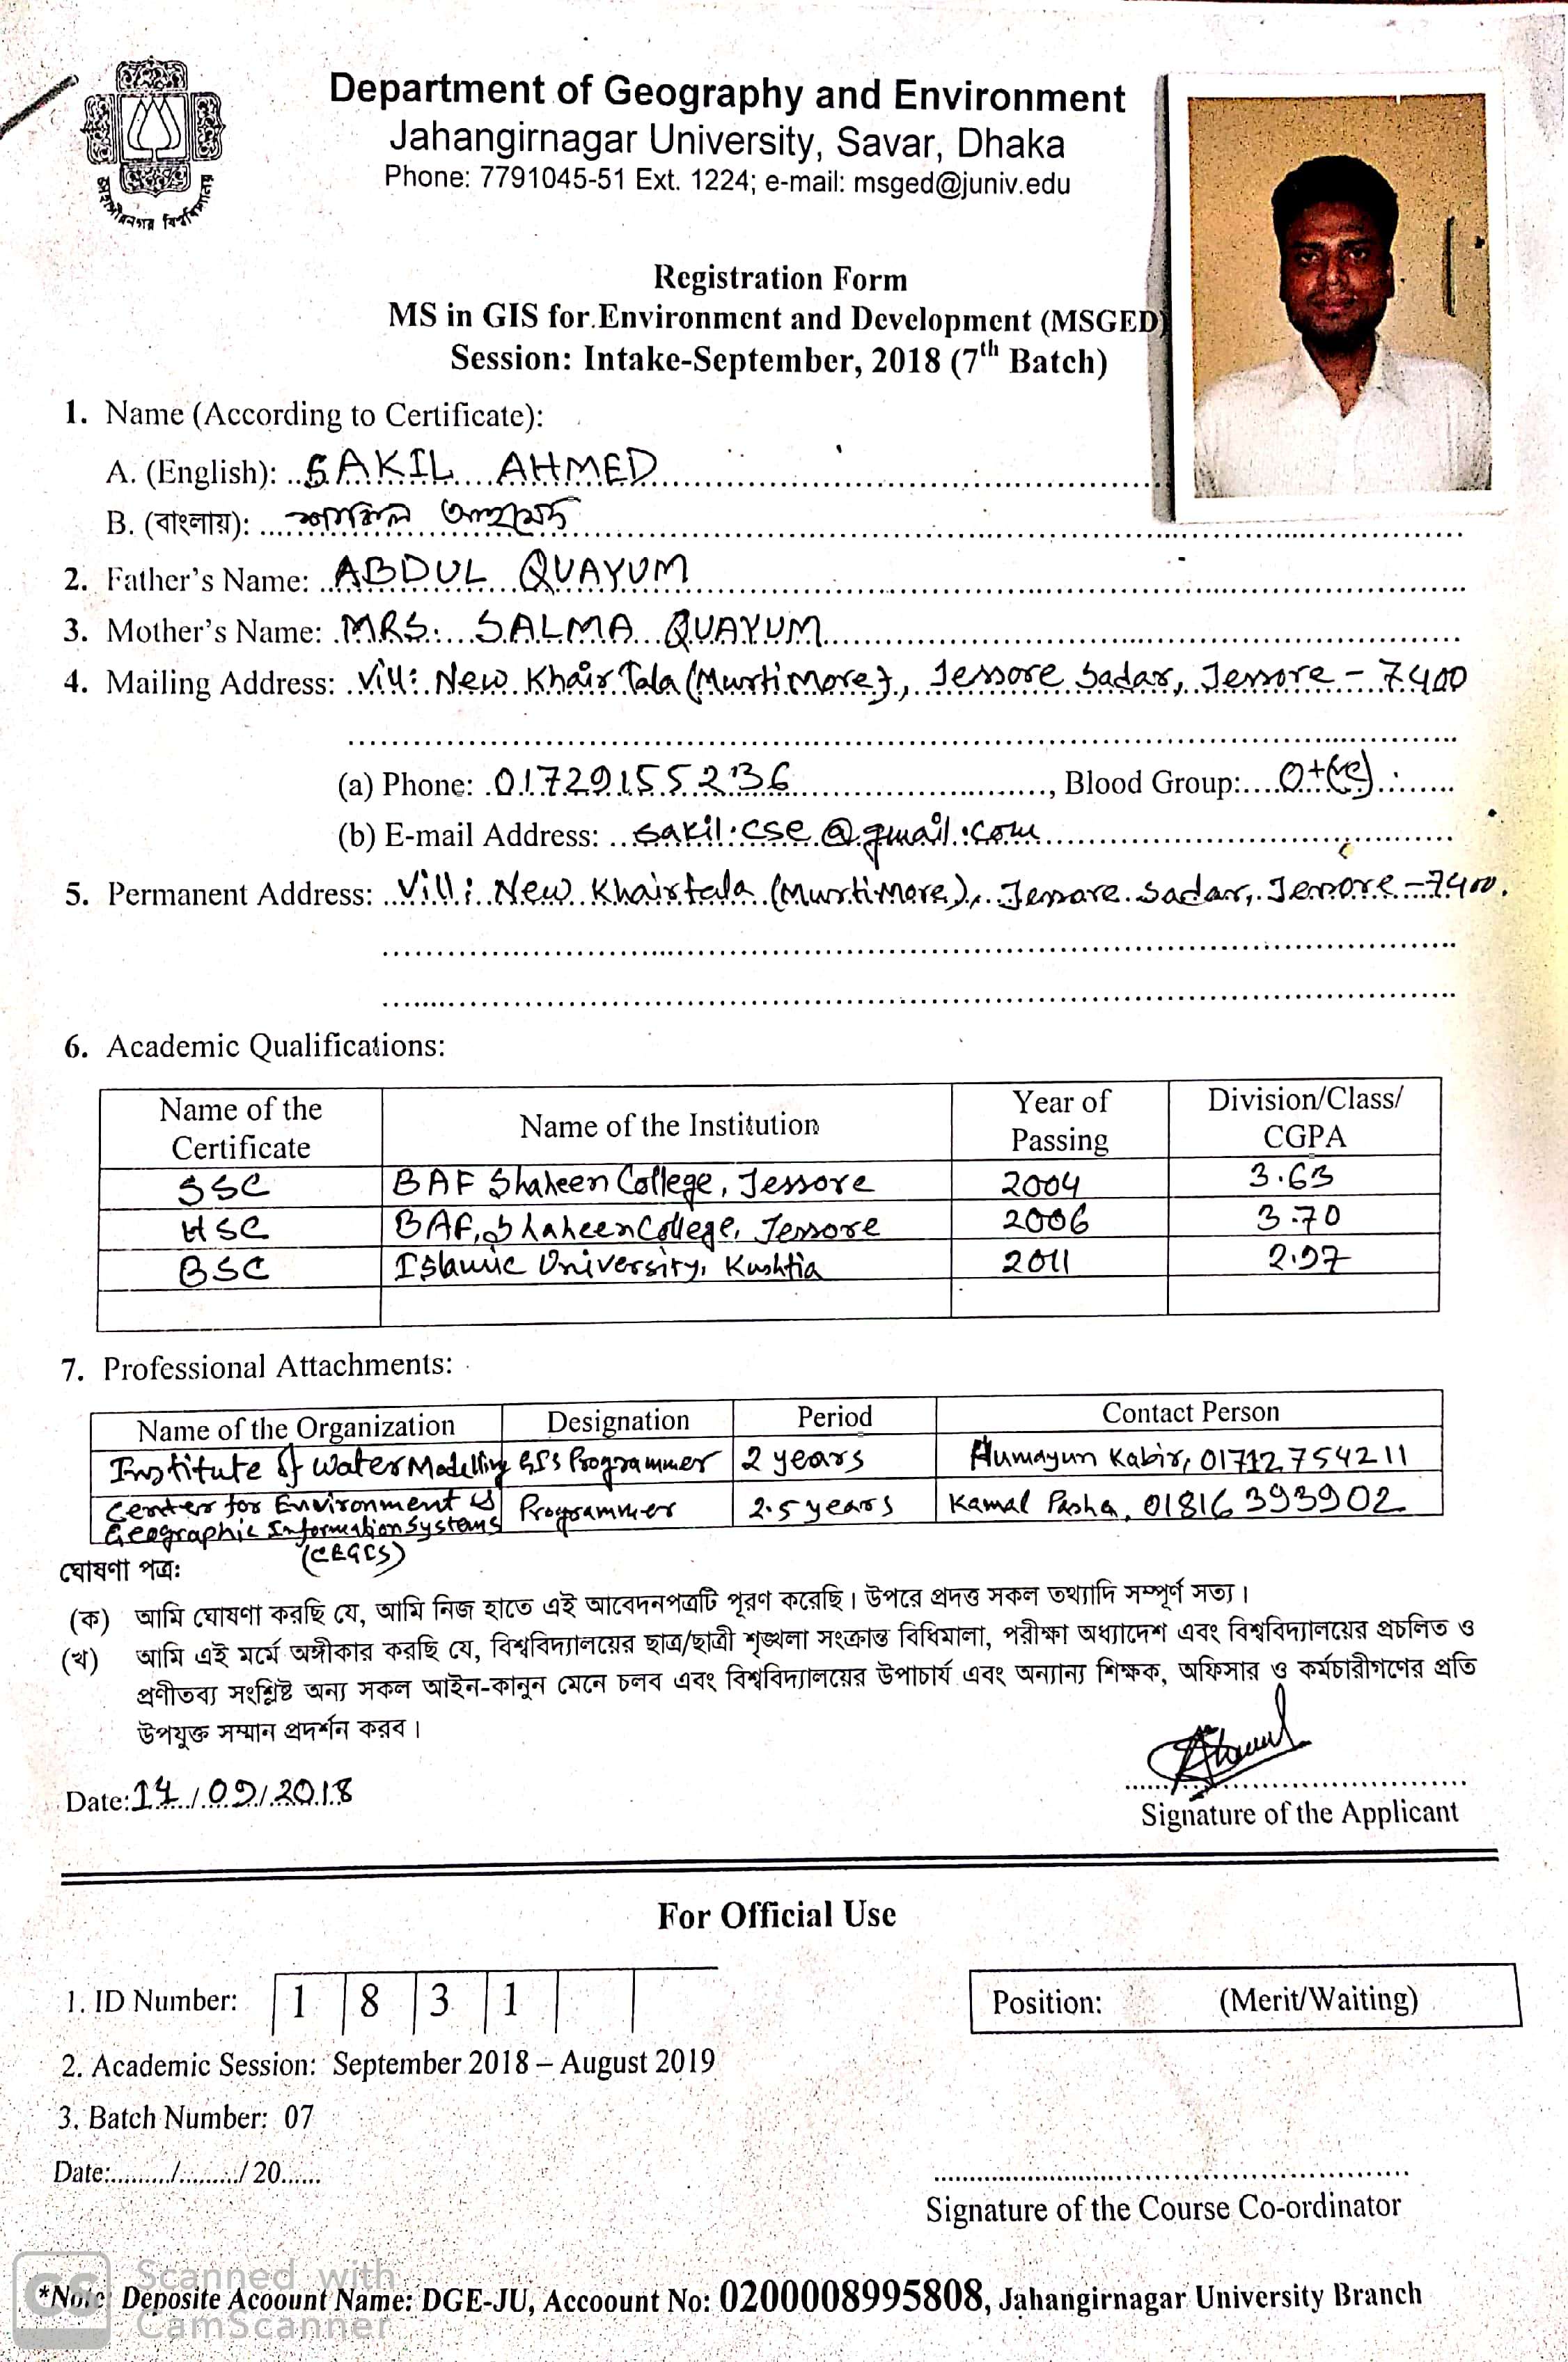 জাহাঙ্গীরনগর বিশ্ববিদ্যালয়
Department of Geography and Environment
Jahangirnagar University, Savar, Dhaka
Phone: 7791045-51 Ext. 1224; e-mail: msged@juniv.edu
Registration Form
MS in GIS for Environment and Development (MSGED)
Session: Intake-September, 2018 (7th Batch)
1. Name (According to Certificate):
A. (English): SAKIL AHMED
B. (বাংলায়): শাকিল আহমেদ
2. Father's Name: ABDUL QUAYUM
3. Mother's Name: MRS. SALMA QUAYUM
4. Mailing Address: Vill: New Khair Tala (Murti More), Jessore Sadar, Jessore - 7400
(a) Phone: 01729155236, Blood Group: O+(ve)
(b) E-mail Address: sakil.cse@gmail.com
5. Permanent Address: Vill: New Khairtala (Murti More), Jessore Sadar, Jessore - 7400.
6. Academic Qualifications:
Name of the Certificate Name of the Institution Year of Passing Division/Class/CGPA
SSC BAF Shaheen College, Jessore 2004 3.63
HSC BAF, Shaheen College, Jessore 2006 3.70
BSC Islamic University, Kushtia 2011 2.97
7. Professional Attachments:
Name of the Organization Designation Period Contact Person
Institute of Water Modelling GIS Programmer 2 years Humayun Kabir, 01712754211
Center for Environment & Geographic Information Systems (CEGIS) Programmer 2.5 years Kamal Pasha, 01816393902
ঘোষণা পত্র:
(ক) আমি ঘোষণা করছি যে, আমি নিজ হাতে এই আবেদনপত্রটি পূরণ করেছি। উপরে প্রদত্ত সকল তথ্যাদি সম্পূর্ণ সত্য।
(খ) আমি এই মর্মে অঙ্গীকার করছি যে, বিশ্ববিদ্যালয়ের ছাত্র/ছাত্রী শৃঙ্খলা সংক্রান্ত বিধিমালা, পরীক্ষা অধ্যাদেশ এবং বিশ্ববিদ্যালয়ের প্রচলিত ও
প্রণীতব্য সংশ্লিষ্ট অন্য সকল আইন-কানুন মেনে চলব এবং বিশ্ববিদ্যালয়ের উপাচার্য এবং অন্যান্য শিক্ষক, অফিসার ও কর্মচারীগণের প্রতি
উপযুক্ত সম্মান প্রদর্শন করব।
Date: 14/09/2018
Signature of the Applicant
For Official Use
1. ID Number: 1 8 3 1
Position: (Merit/Waiting)
2. Academic Session: September 2018 – August 2019
3. Batch Number: 07
Date:........./........./ 20......
Signature of the Course Co-ordinator
*Note: Deposite Acoount Name: DGE-JU, Accoount No: 0200008995808, Jahangirnagar University Branch
CS Scanned with
CamScanner